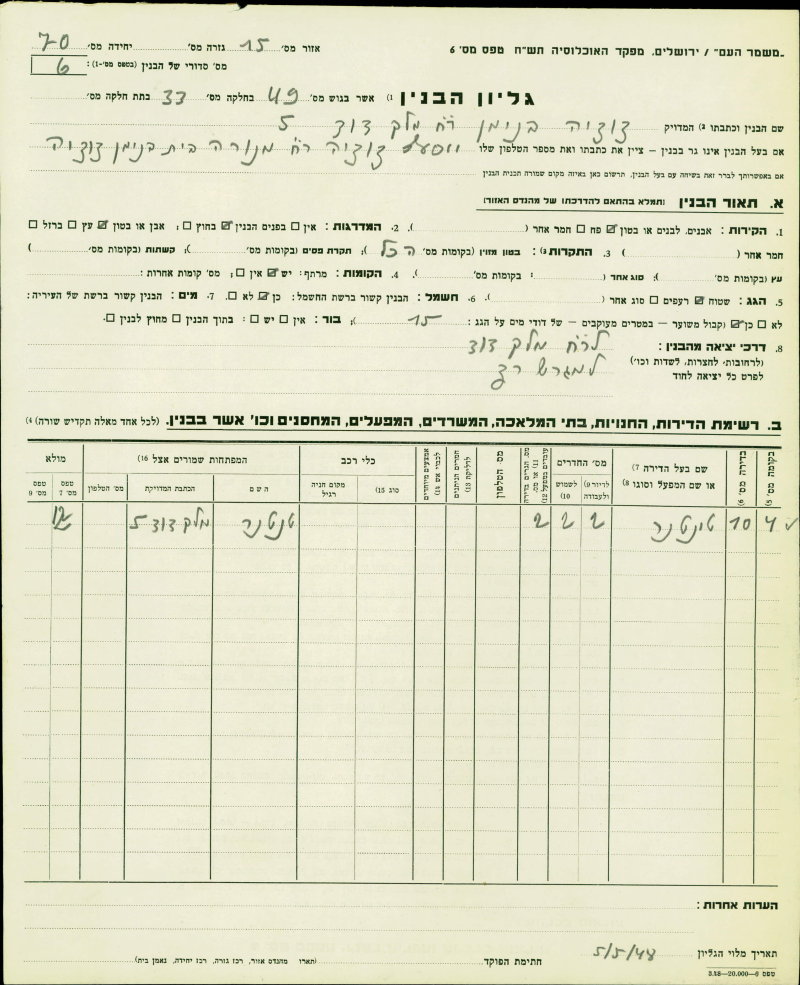 „משמר העם" / ירושלים. מפקד האוכלוסיה תש"ח טפס מס׳ 6
אזור מס׳ 15 גזרה מס׳ יחידה מס׳ 70
מס׳ סדורי של הבנין (בטפס מס׳-1): 6
גליון הבנין 1) אשר בגוש מס׳ 49 בחלקה מס׳ 33 בתת חלקה מס׳
שם הבנין וכתבתו 2) המדויק בנימן רח׳ מלק דוד 5
אם בעל הבנין אינו גר בבנין – ציין את כתבתו ואת מספר הטלפון שלו רח׳ מנורה בית בנימן
אם באפשרותך לברר זאת בשיחה עם בעל הבנין, תרשום כאן באיזה מקום שמורה תכנית הבנין
א. תאור הבנין (תמלא בהתאם להדרכתו של מהנדס האזור)
1. הקירות: אבנים, לבנים או בטון ☑ פח ☐ חמר אחר ( ). 2. המדרגות: אין ☐ בפנים הבנין ☑ בחוץ ☐; אבן או בטון ☑ עץ ☐ ברזל ☐
חמר אחר ( ) 3. התקרות 3): בטון מזוין (בקומות מס׳ הכל ); תקרת פסים (בקומות מס׳ ); קשתות (בקומות מס׳ )
עץ (בקומות מס׳ ); סוג אחד ( : בקומות מס׳ ). 4. הקומות: מרתף: יש ☑ אין ☐; מס׳ קומות אחרות:
5. הגג: שטוח ☑ רעפים ☐ סוג אחר ( ). 6. חשמל: הבנין קשור ברשת החשמל: כן ☑ לא ☐. 7. מים: הבנין קשור ברשת של העיריה:
לא ☐ כן ☑ (קבול משוער – במטרים מעוקבים – של דודי מים על הגג: 15 ); בור: אין ☐ יש ☐: בתוך הבנין ☐ מחוץ לבנין ☐.
8. דרכי יציאה מהבנין: לרח׳ מלק דוד
(לרחובות, לחצרות, לשדות וכו׳) למגרש
לפרט כל יציאה לחוד
ב. רשימת הדירות, החנויות, בתי המלאכה, המשרדים, המפעלים, המחסנים וכו׳ אשר בבנין. (לכל אחד מאלה תקדיש שורה) 4)
בקומה מס׳ 5) בדירה מס׳ 6) שם בעל הדירה 7) או שם המפעל וסוגו 8) מס׳ החדרים לדיור 9) ולעבודה לשמוש 10) מס. הגרים בדירה 11) או מס. עובדים במפעל 12) מס הטלפון חמרים הניתנים לדליקה 13) אמצעים מיוחדים לכבוי אש 14) כלי רכב סוג 15) מקום חניה רגיל המפתחות שמורים אצל 16) השם הכתבת המדויקת מס׳ הטלפון מולא טפס מס׳ 7 טפס מס׳ 9
4 10 טינטנר 2 2 2 טנטנר מלק דוד 5
הערות אחרות:
תאריך מלוי הגליון 5/5/48 חתימת הפוקד (תארו מהנדס אזור, רכז גזרה, רכז יחידה, נאמן בית)
טפס 6—20.000—3.48